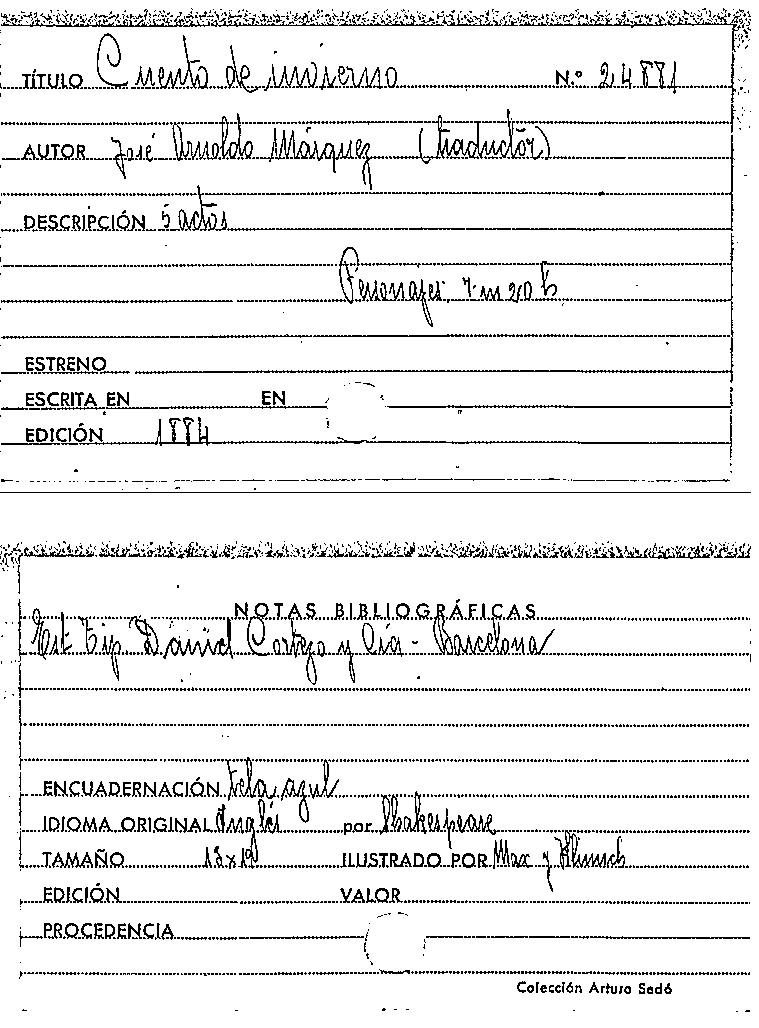 TÍTULO Cuento de invierno N.º 24881
AUTOR José Arnoldo Márquez (traductor)
DESCRIPCIÓN 5 actos
Personajes: 7 m 20 h
ESTRENO
ESCRITA EN EN
EDICIÓN 1884
NOTAS BIBLIOGRÁFICAS
Est. Tip. Daniel Cortezo y Cía - Barcelona
ENCUADERNACIÓN tela azul
IDIOMA ORIGINAL Inglés por Shakespeare
TAMAÑO ILUSTRADO POR y
EDICIÓN VALOR
PROCEDENCIA
Colección Arturo Sedó